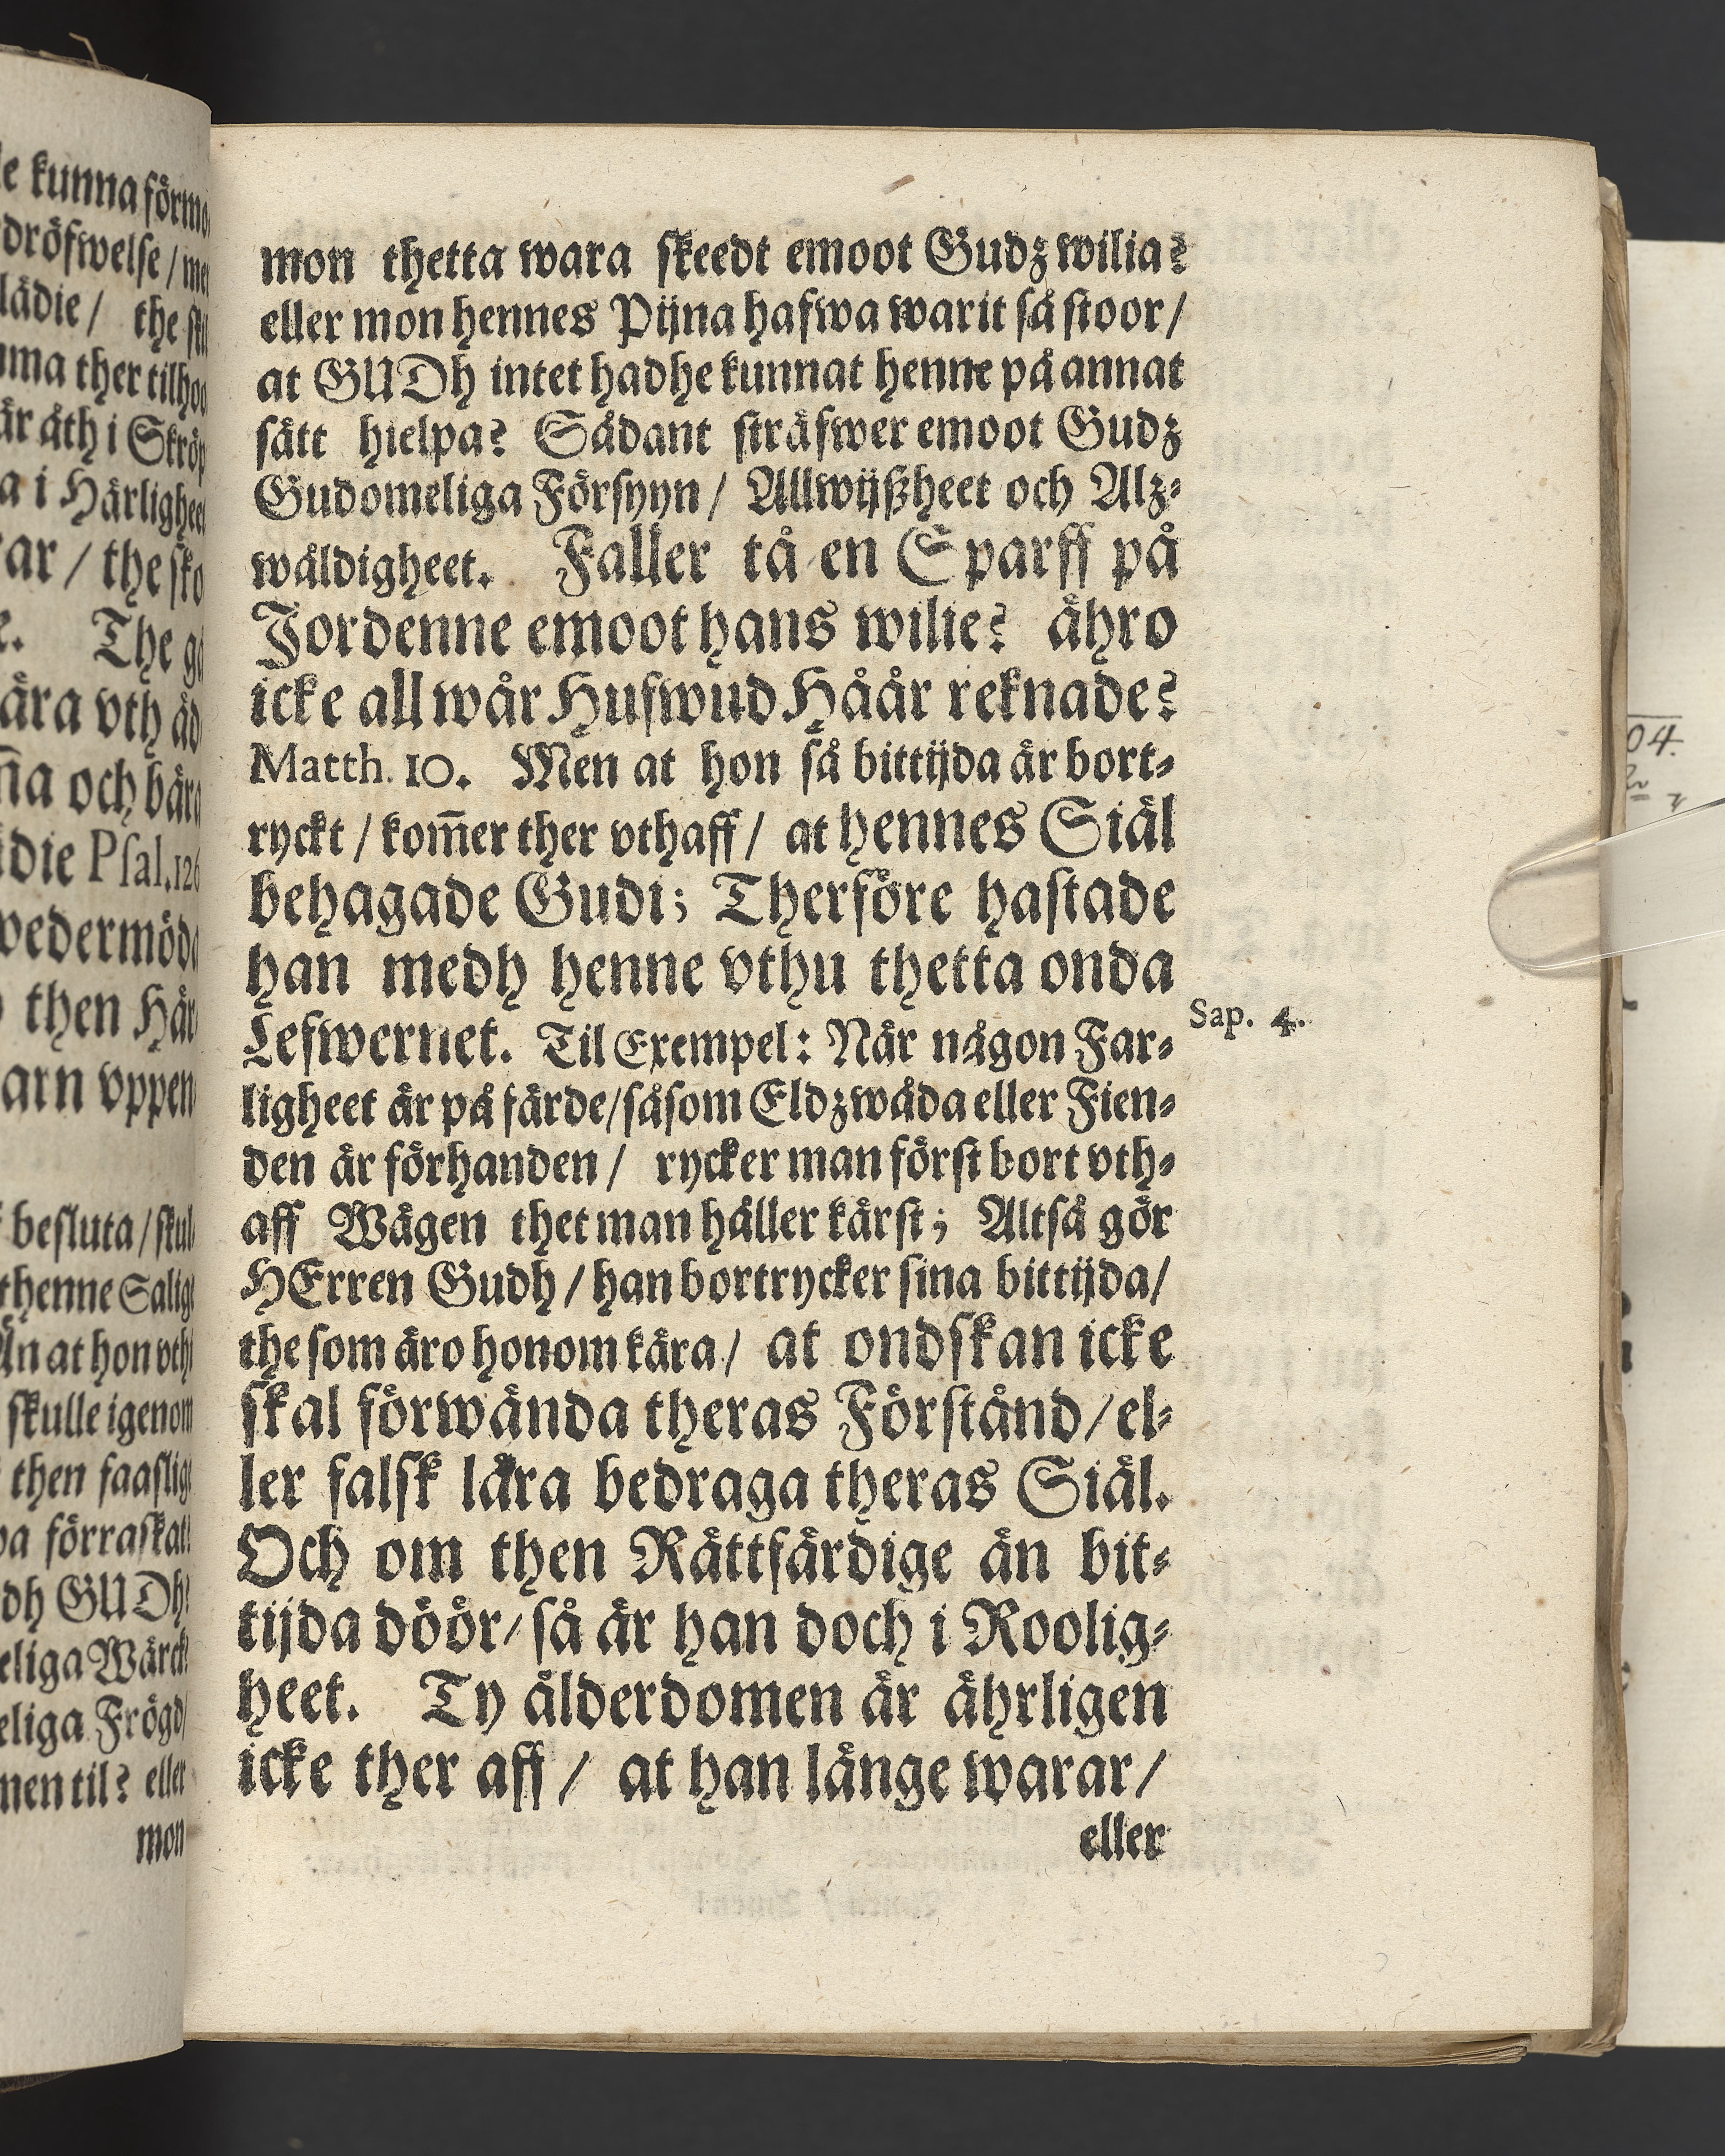 le kunna förmo
dröfwelse / men
lädie / the
ma ther tilhoo
är åth i Skröp
a i Härlighee
ar / the sko
e. The gå
ära vth åd
m̃a och bära
die Psal. 126
vedermöda
then Här
arn vppen
besluta / skul
thenne Salig
Än at hon vthi
skulle igenom
then faaslig
pa förraskat
dh GUDh
eliga Wärck
eliga Frögd
men til? eller
mon
mon thetta wara skeedt emoot Gudz wilia?
eller mon hennes Pijna hafwa warit så stoor /
at GUDh intet hadhe kunnat henne på annat
sätt hielpa? Sådant sträfwer emoot Gudz
Gudomeliga Försyyn / Allwijßheet och Alz-
wåldigheet. Faller tå en Sparff på
Jordenne emoot hans wilie? ähro
icke all wår Hufwud Håår reknade?
Matth. 10. Men at hon så bittijda är bort-
ryckt / kom̃er ther vthaff / at hennes Siäl
behagade Gudi; Therföre hastade
han medh henne vthu thetta onda
Lefwernet. Til Exempel: När någon Far-
ligheet är på färde / såsom Eldzwåda eller Fien-
den är förhanden / rycker man först bort vth-
aff Wägen thet man håller kärst; Altså gör
HErren Gudh / han bortrycker sina bittijda /
the som äro honom kära / at ondskan icke
skal förwända theras Förstånd / el-
ler falsk lära bedraga theras Siäl.
Och om then Rättfärdige än bit-
tijda döör / så är han doch i Roolig-
heet. Ty ålderdomen är ährligen
icke ther aff / at han länge warar /
eller
Sap. 4.
04.